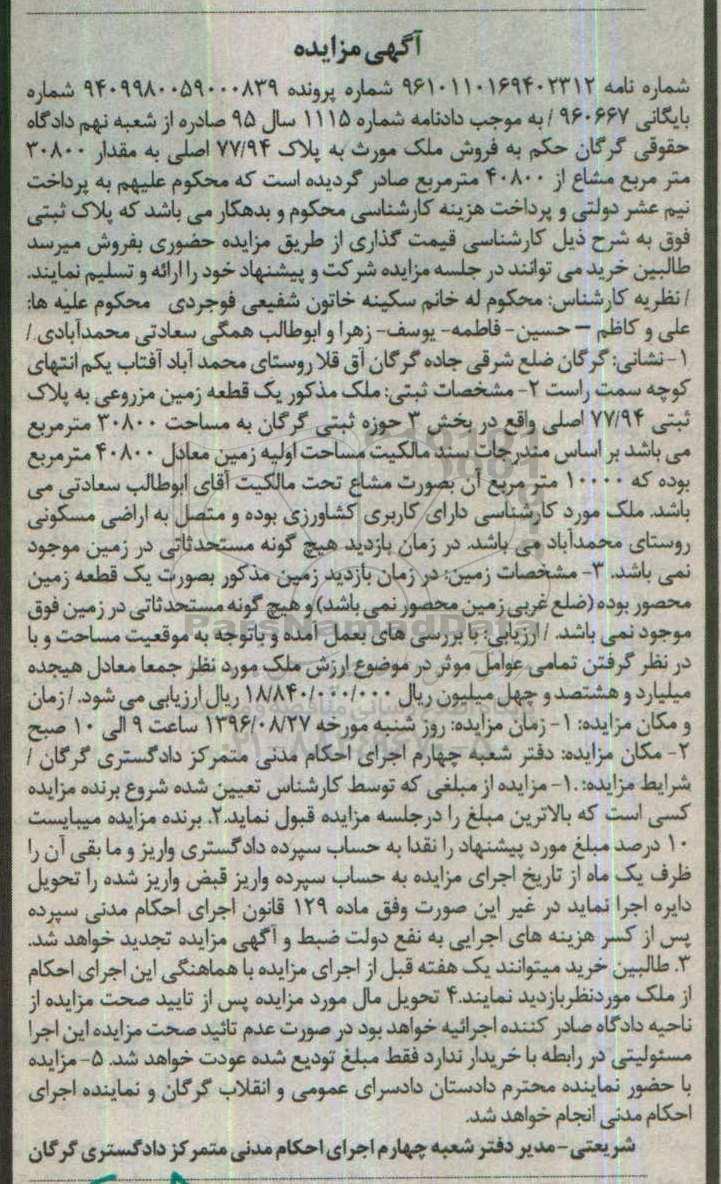 آگهی مزایده
شماره نامه ۹۶۱۰۱۱۰۱۶۹۴۰۲۳۱۲ شماره پرونده ۹۴۰۹۹۸۰۰۵۹۰۰۰۸۳۹ شماره
بایگانی ۹۶۰۶۶۷ / به موجب دادنامه شماره ۱۱۱۵ سال ۹۵ صادره از شعبه نهم دادگاه
حقوقی گرگان حکم به فروش ملک مورث به پلاک ۷۷/۹۴ اصلی به مقدار ۳۰۸۰۰
متر مربع مشاع از ۴۰۸۰۰ مترمربع صادر گردیده است که محکوم علیهم به پرداخت
نیم عشر دولتی و پرداخت هزینه کارشناسی محکوم و بدهکار می باشد که پلاک ثبتی
فوق به شرح ذیل کارشناسی قیمت گذاری از طریق مزایده حضوری بفروش میرسد
طالبین خرید می توانند در جلسه مزایده شرکت و پیشنهاد خود را ارائه و تسلیم نمایند.
/ نظریه کارشناس: محکوم له خانم سکینه خاتون شفیعی فوجردی محکوم علیه ها:
علی و کاظم – حسین- فاطمه- یوسف- زهرا و ابوطالب همگی سعادتی محمدآبادی /
۱- نشانی: گرگان ضلع شرقی جاده گرگان آق قلا روستای محمد آباد آفتاب یکم انتهای
کوچه سمت راست ۲- مشخصات ثبتی: ملک مذکور یک قطعه زمین مزروعی به پلاک
ثبتی ۷۷/۹۴ اصلی واقع در بخش ۳ حوزه ثبتی گرگان به مساحت ۳۰۸۰۰ مترمربع
می باشد بر اساس مندرجات سند مالکیت مساحت اولیه زمین معادل ۴۰۸۰۰ مترمربع
بوده که ۱۰۰۰۰ متر مربع آن بصورت مشاع تحت مالکیت آقای ابوطالب سعادتی می
باشد. ملک مورد کارشناسی دارای کاربری کشاورزی بوده و متصل به اراضی مسکونی
روستای محمدآباد می باشد. در زمان بازدید هیچ گونه مستحدثاتی در زمین موجود
نمی باشد. ۳- مشخصات زمین: در زمان بازدید زمین مذکور بصورت یک قطعه زمین
محصور بوده (ضلع غربی زمین محصور نمی باشد) و هیچ گونه مستحدثاتی در زمین فوق
موجود نمی باشد. / ارزیابی: با بررسی های بعمل آمده و باتوجه به موقعیت مساحت و با
در نظر گرفتن تمامی عوامل موثر در موضوع ارزش ملک مورد نظر جمعا معادل هیجده
میلیارد و هشتصد و چهل میلیون ریال ۱۸/۸۴۰/۰۰۰/۰۰۰ ریال ارزیابی می شود. / زمان
و مکان مزایده: ۱- زمان مزایده: روز شنبه مورخه ۱۳۹۶/۰۸/۲۷ ساعت ۹ الی ۱۰ صبح
۲- مکان مزایده: دفتر شعبه چهارم اجرای احکام مدنی متمرکز دادگستری گرگان /
شرایط مزایده: ۱.- مزایده از مبلغی که توسط کارشناس تعیین شده شروع برنده مزایده
کسی است که بالاترین مبلغ را درجلسه مزایده قبول نماید.۲. برنده مزایده میبایست
۱۰ درصد مبلغ مورد پیشنهاد را نقدا به حساب سپرده دادگستری واریز و ما بقی آن را
ظرف یک ماه از تاریخ اجرای مزایده به حساب سپرده واریز قبض واریز شده را تحویل
دایره اجرا نماید در غیر این صورت وفق ماده ۱۲۹ قانون اجرای احکام مدنی سپرده
پس از کسر هزینه های اجرایی به نفع دولت ضبط و آگهی مزایده تجدید خواهد شد.
۳. طالبین خرید میتوانند یک هفته قبل از اجرای مزایده با هماهنگی این اجرای احکام
از ملک موردنظربازدید نمایند.۴ تحویل مال مورد مزایده پس از تایید صحت مزایده از
ناحیه دادگاه صادر کننده اجرائیه خواهد بود در صورت عدم تائید صحت مزایده این اجرا
مسئولیتی در رابطه با خریدار ندارد فقط مبلغ تودیع شده عودت خواهد شد. ۵- مزایده
با حضور نماینده محترم دادستان دادسرای عمومی و انقلاب گرگان و نماینده اجرای
احکام مدنی انجام خواهد شد.
شریعتی – مدیر دفتر شعبه چهارم اجرای احکام مدنی متمرکز دادگستری گرگان
ParsNamadData